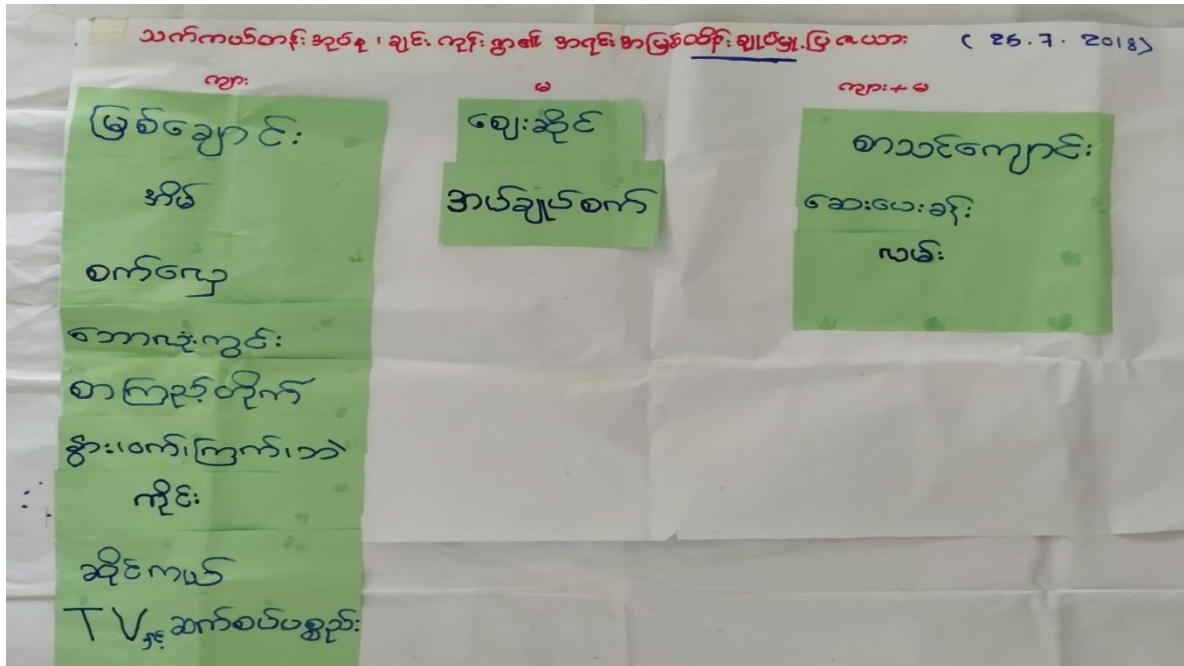 သက်ကယ်တန်းအုပ်စု၊ ချင်းကုန်းရွာ၏ အရင်းအမြစ်ထိန်းချုပ်မှုပြဇယား (25.7.2018)
ကျား မ ကျား+မ
မြစ်ချောင်း
အိမ်
စက်လှေ
ဘောလုံးကွင်း
စာကြည့်တိုက်
နွား၊ဝက်၊ကြက်၊ဘဲ
ကိုင်း
ဆိုင်ကယ်
TVနှင့်ဆက်စပ်ပစ္စည်း
ဈေးဆိုင်
အပ်ချုပ်စက်
စာသင်ကျောင်း
ဆေးပေးခန်း
လမ်း